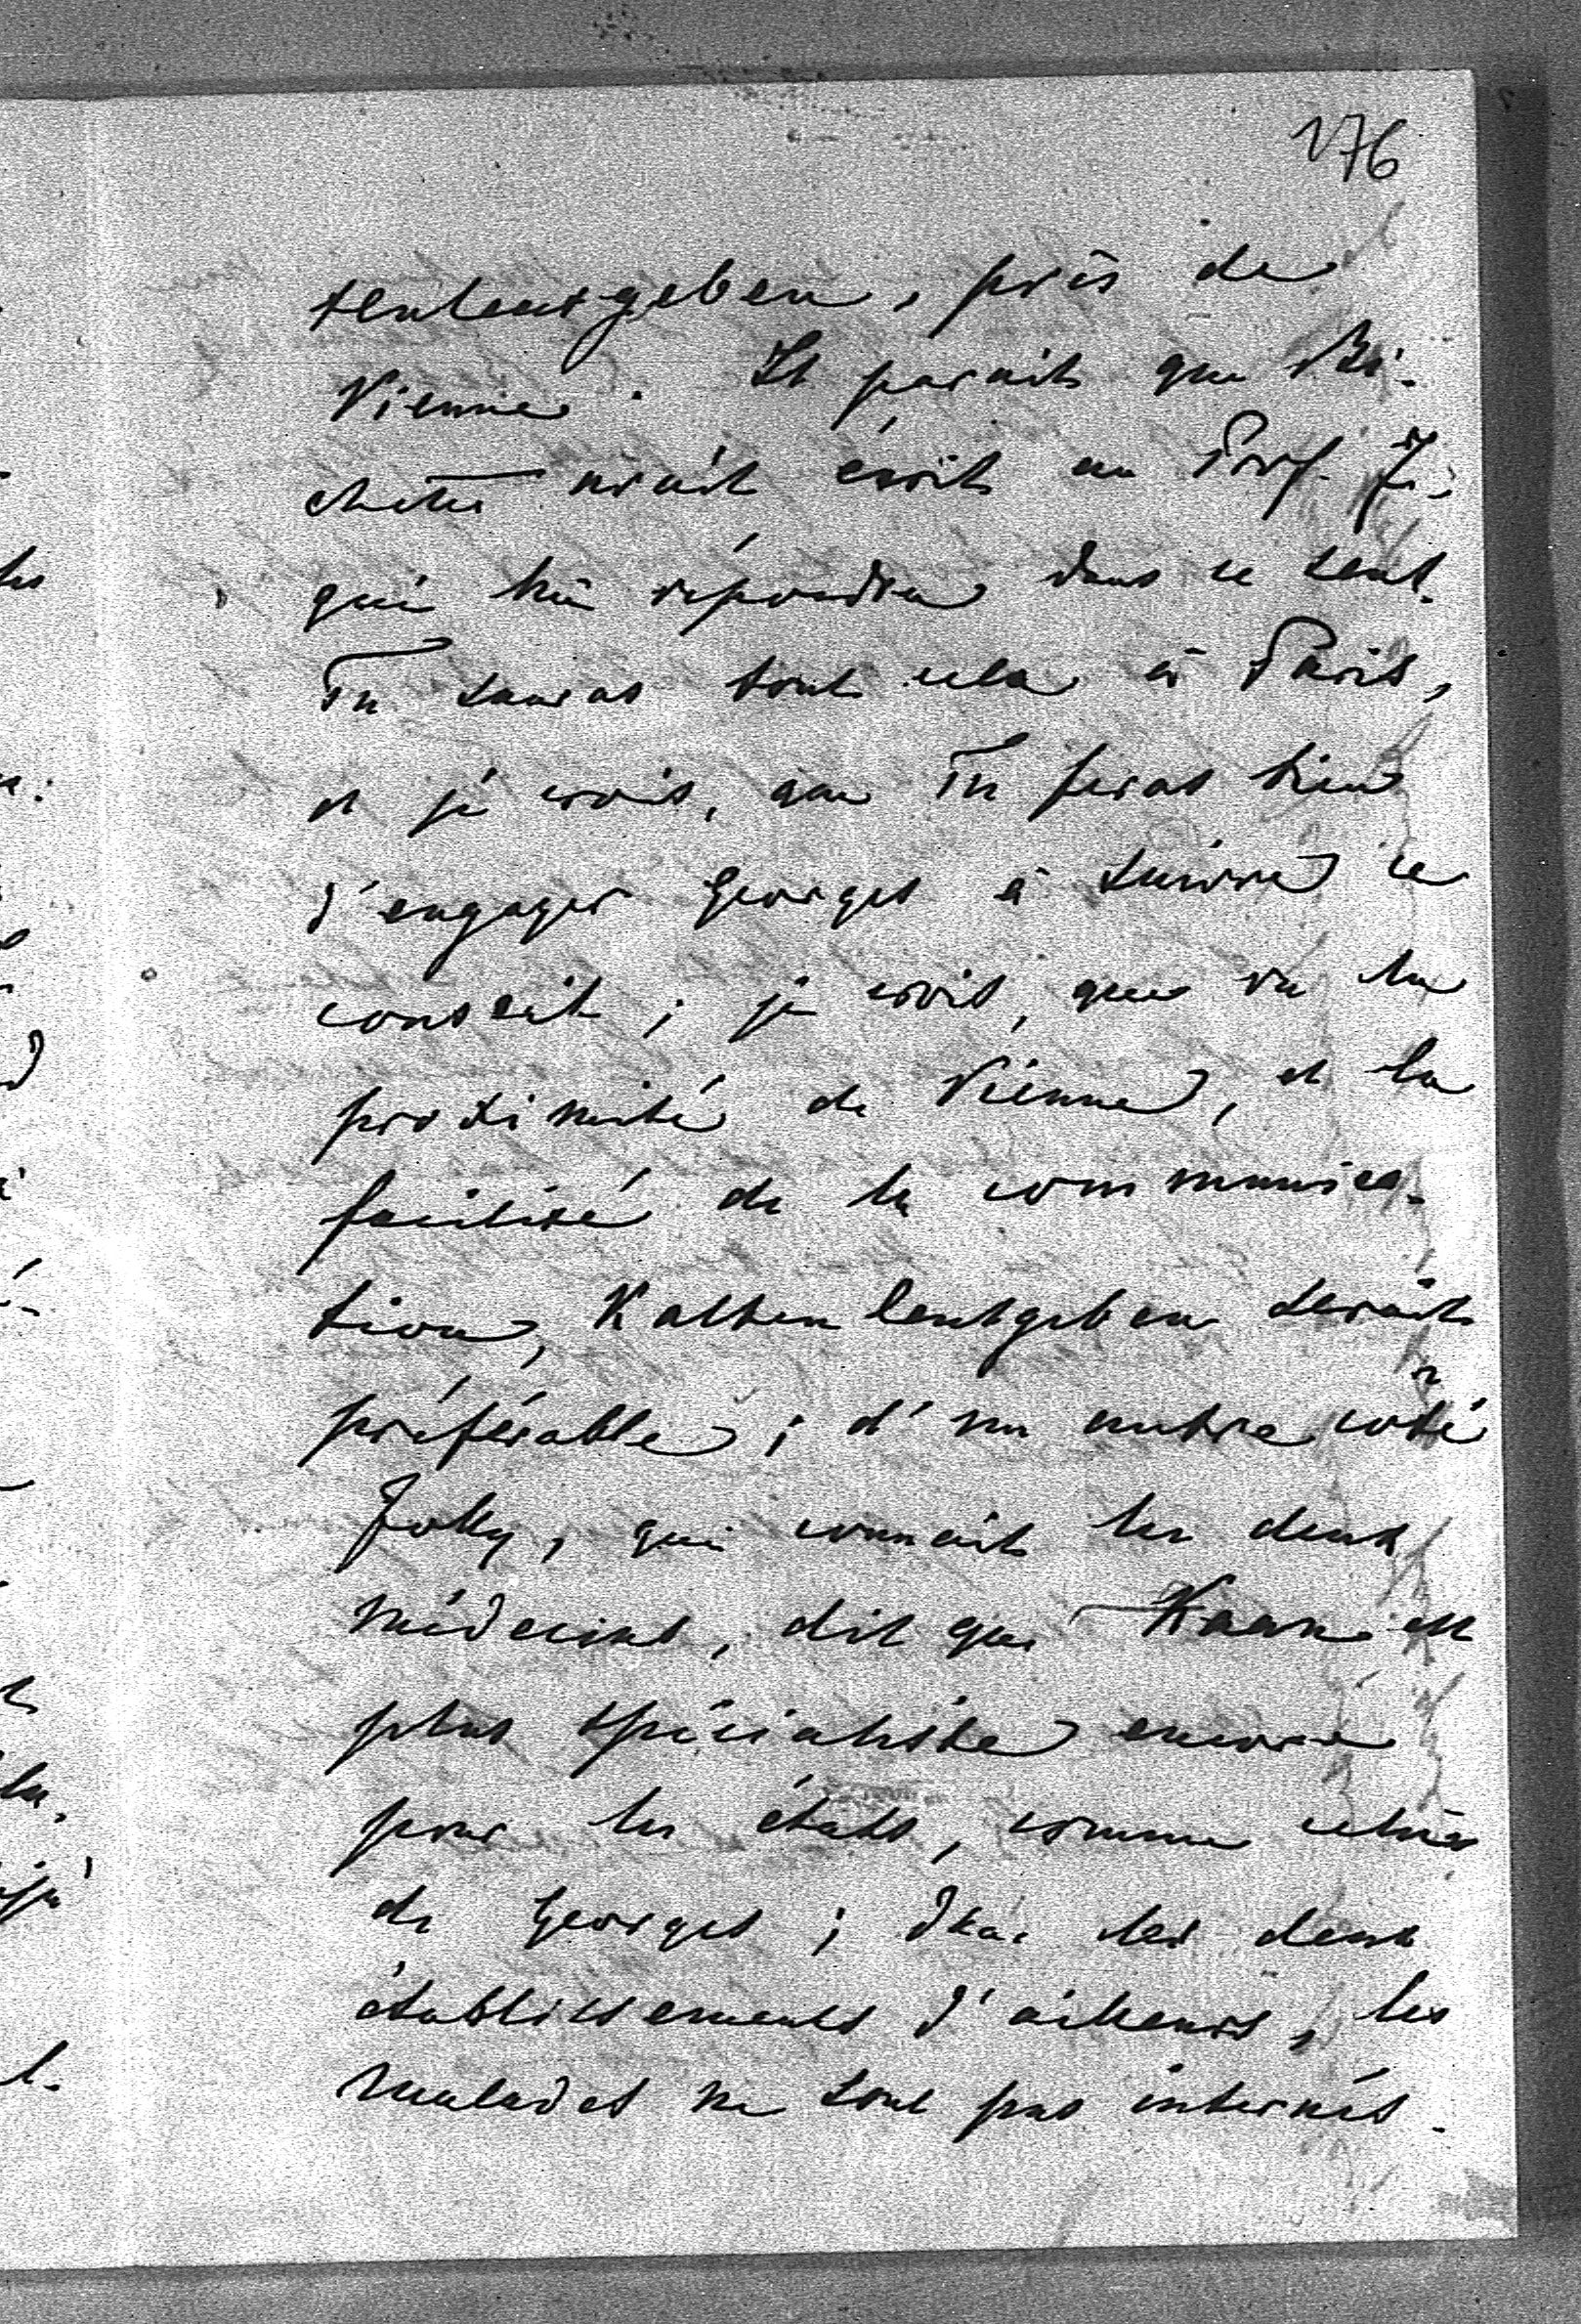 176
tenleutgeben, près de
Vienne. Il parait que Ri-
chetti avait écrit au Prof. J.
qui lui répondra dans ce sens.
Tu sauras tout cela à Paris,
et je crois, que Tu feras bien
d'engager Georges à suivre ce
conseil; je crois, que vu la
proximité de Vienne, et la
facilité de la communica-
tion, Kaltenleutgeben serait
préférable; d'un autre côté
Jolly, qui connait les deux
médecins, dit que Kaan est
plus spécialiste encore
pour les états, comme celui
de Georges; les deux
établissements d'ailleurs, les
malades ne sont pas internés.